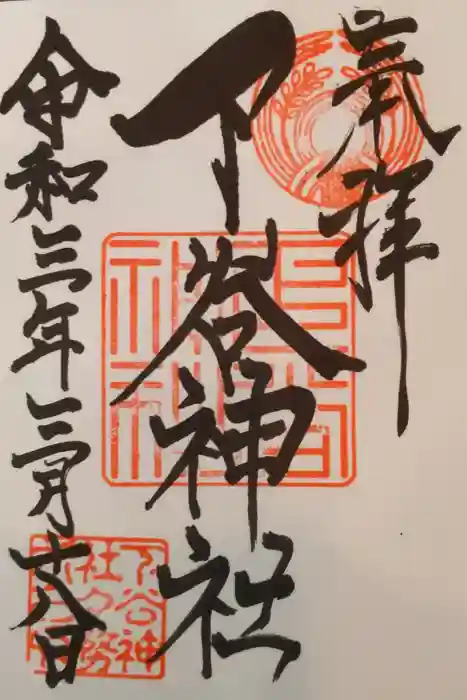 奉拝
下谷神社
令和三年三月十八日
下谷神
社